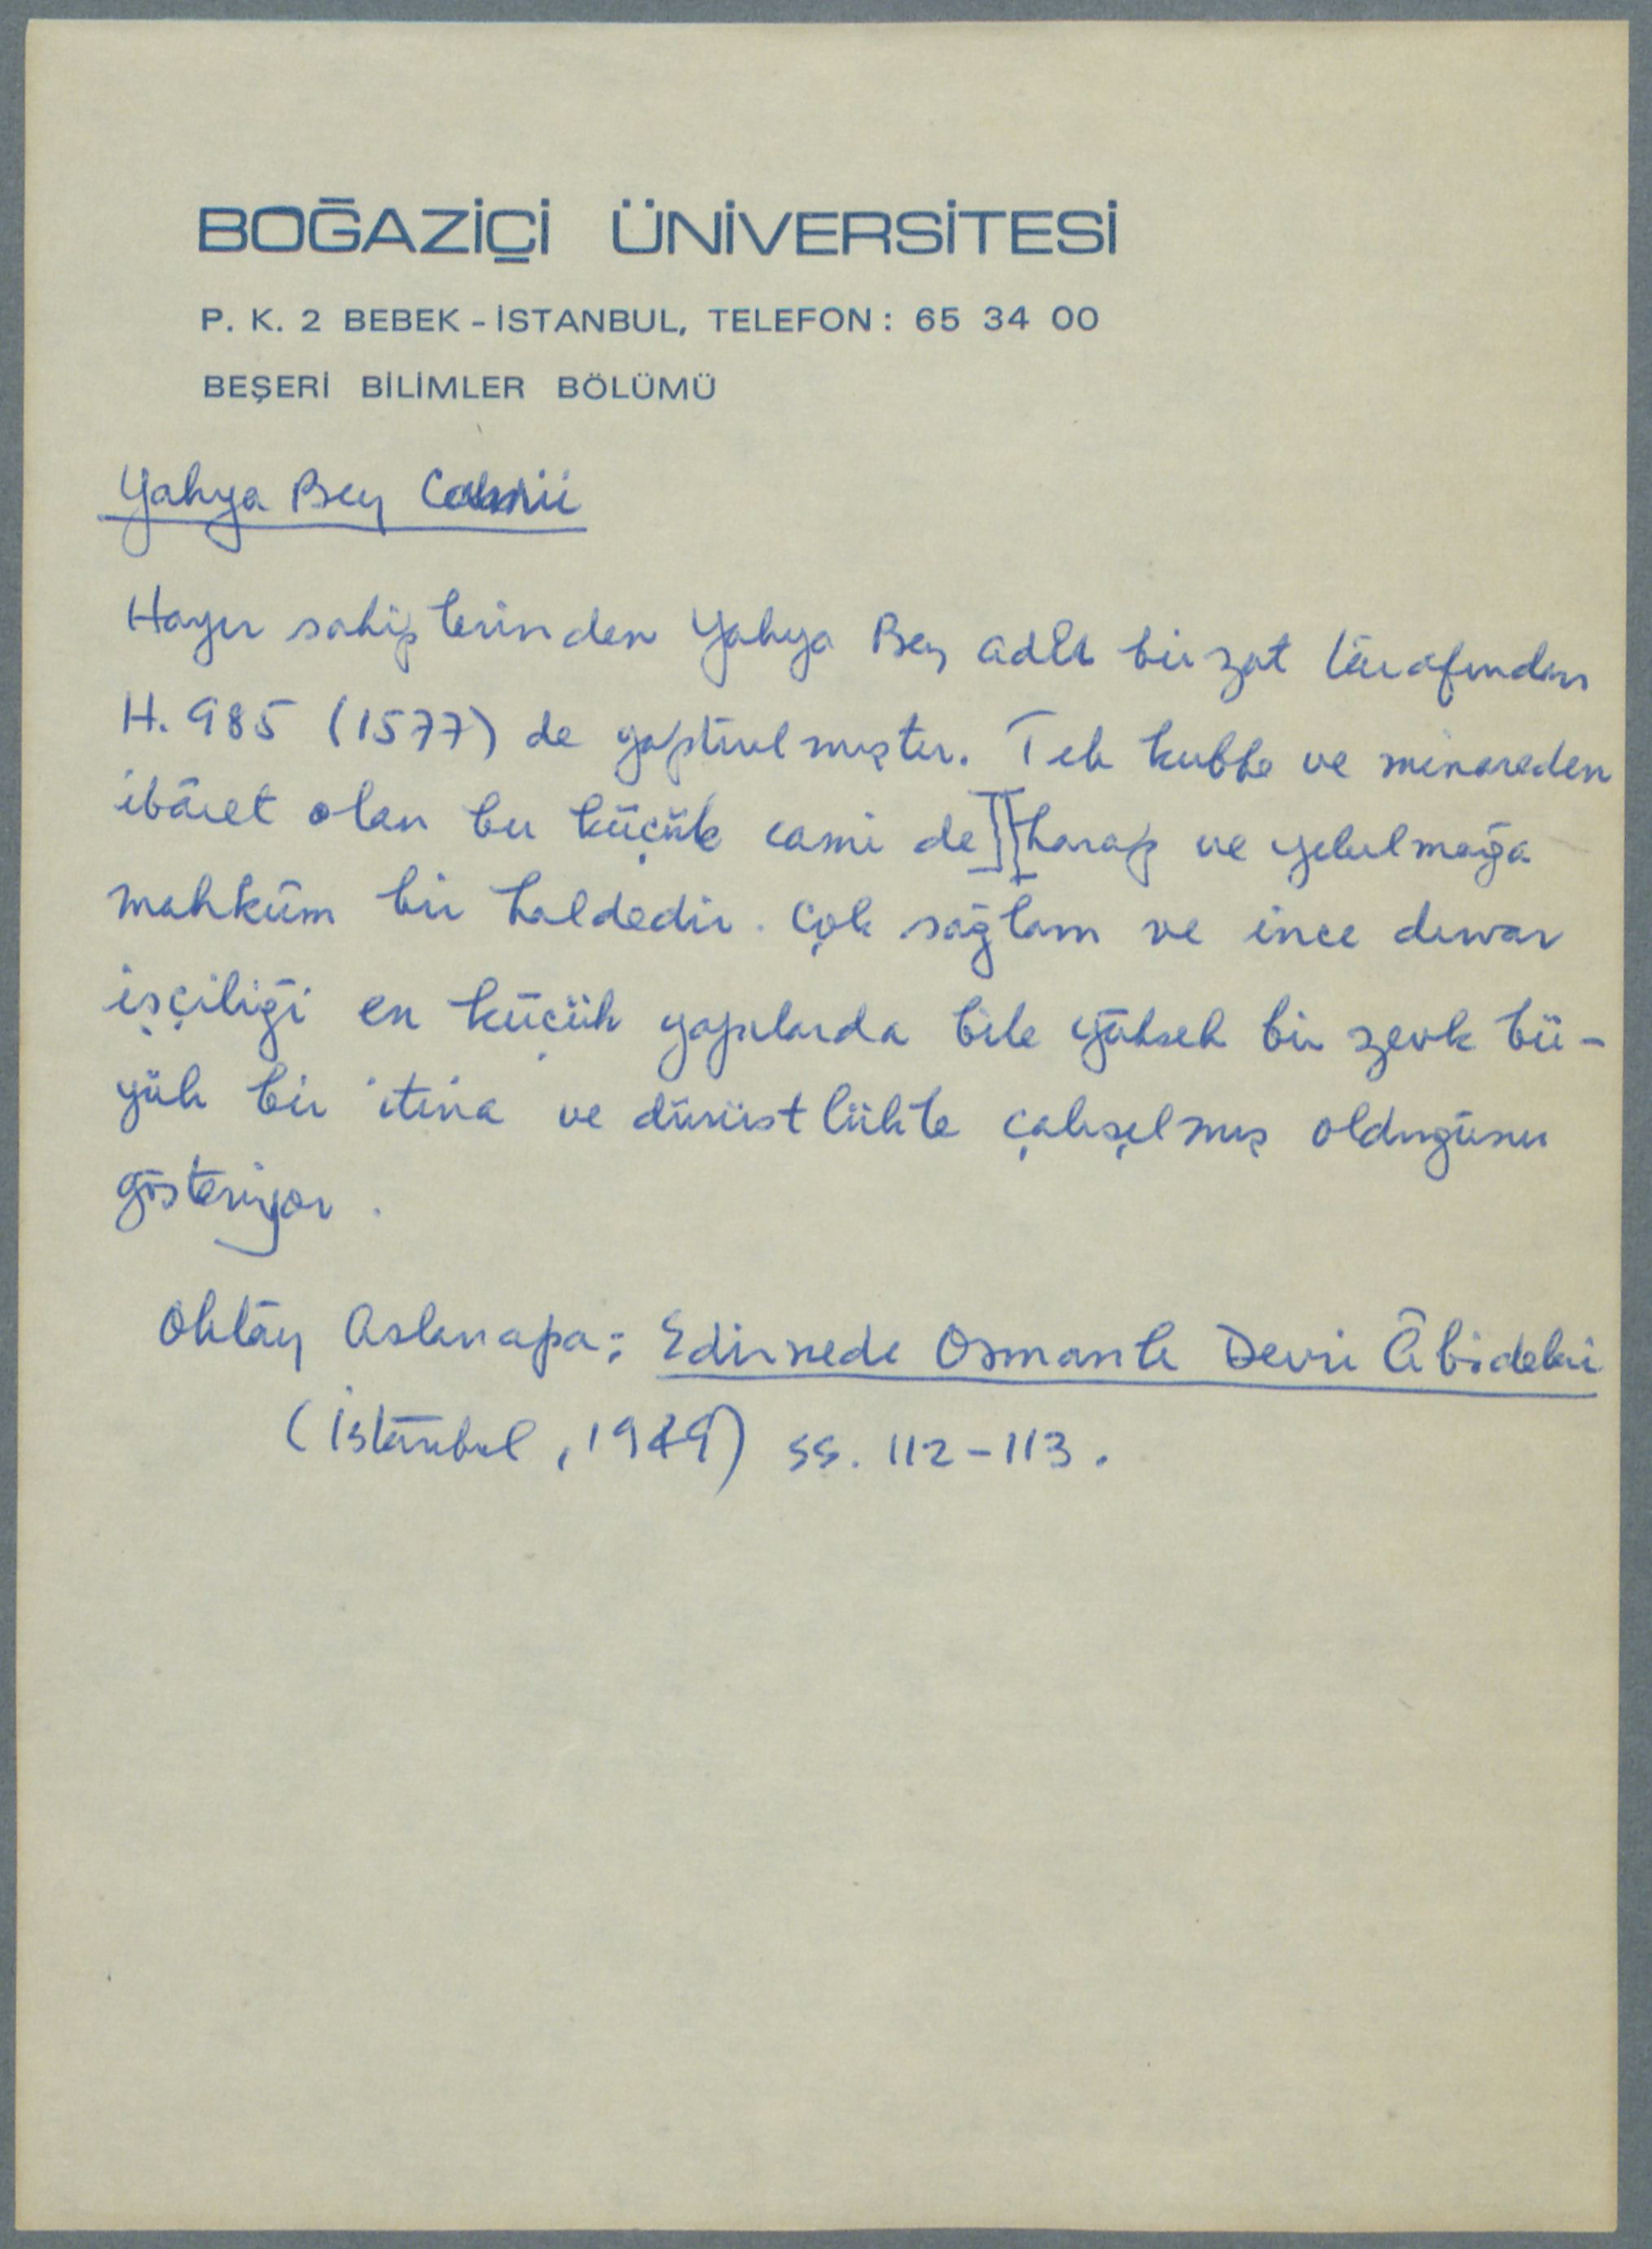 BOĞAZİÇİ ÜNİVERSİTESİ
P. K. 2 BEBEK - İSTANBUL, TELEFON : 65 34 00
BEŞERİ BİLİMLER BÖLÜMÜ
Yahya Bey Camii
Hayır sahiplerinden Yahya Bey adlı bir zat tarafından
H. 985 (1577) de yaptırılmıştır. Tek kubbe ve minareden
ibâret olan bu küçük cami de harap ve yıkılmağa
mahkûm bir haldedir. Çok sağlam ve ince duvar
işçiliği en küçük yapılarda bile yüksek bir zevk bü-
yük bir itina ve dürüstlükte çalışılmış olduğunu
gösteriyor.
Oktay Aslanapa: Edirnede Osmanlı Devri Âbideleri
(İstanbul, 1949) ss. 112-113.